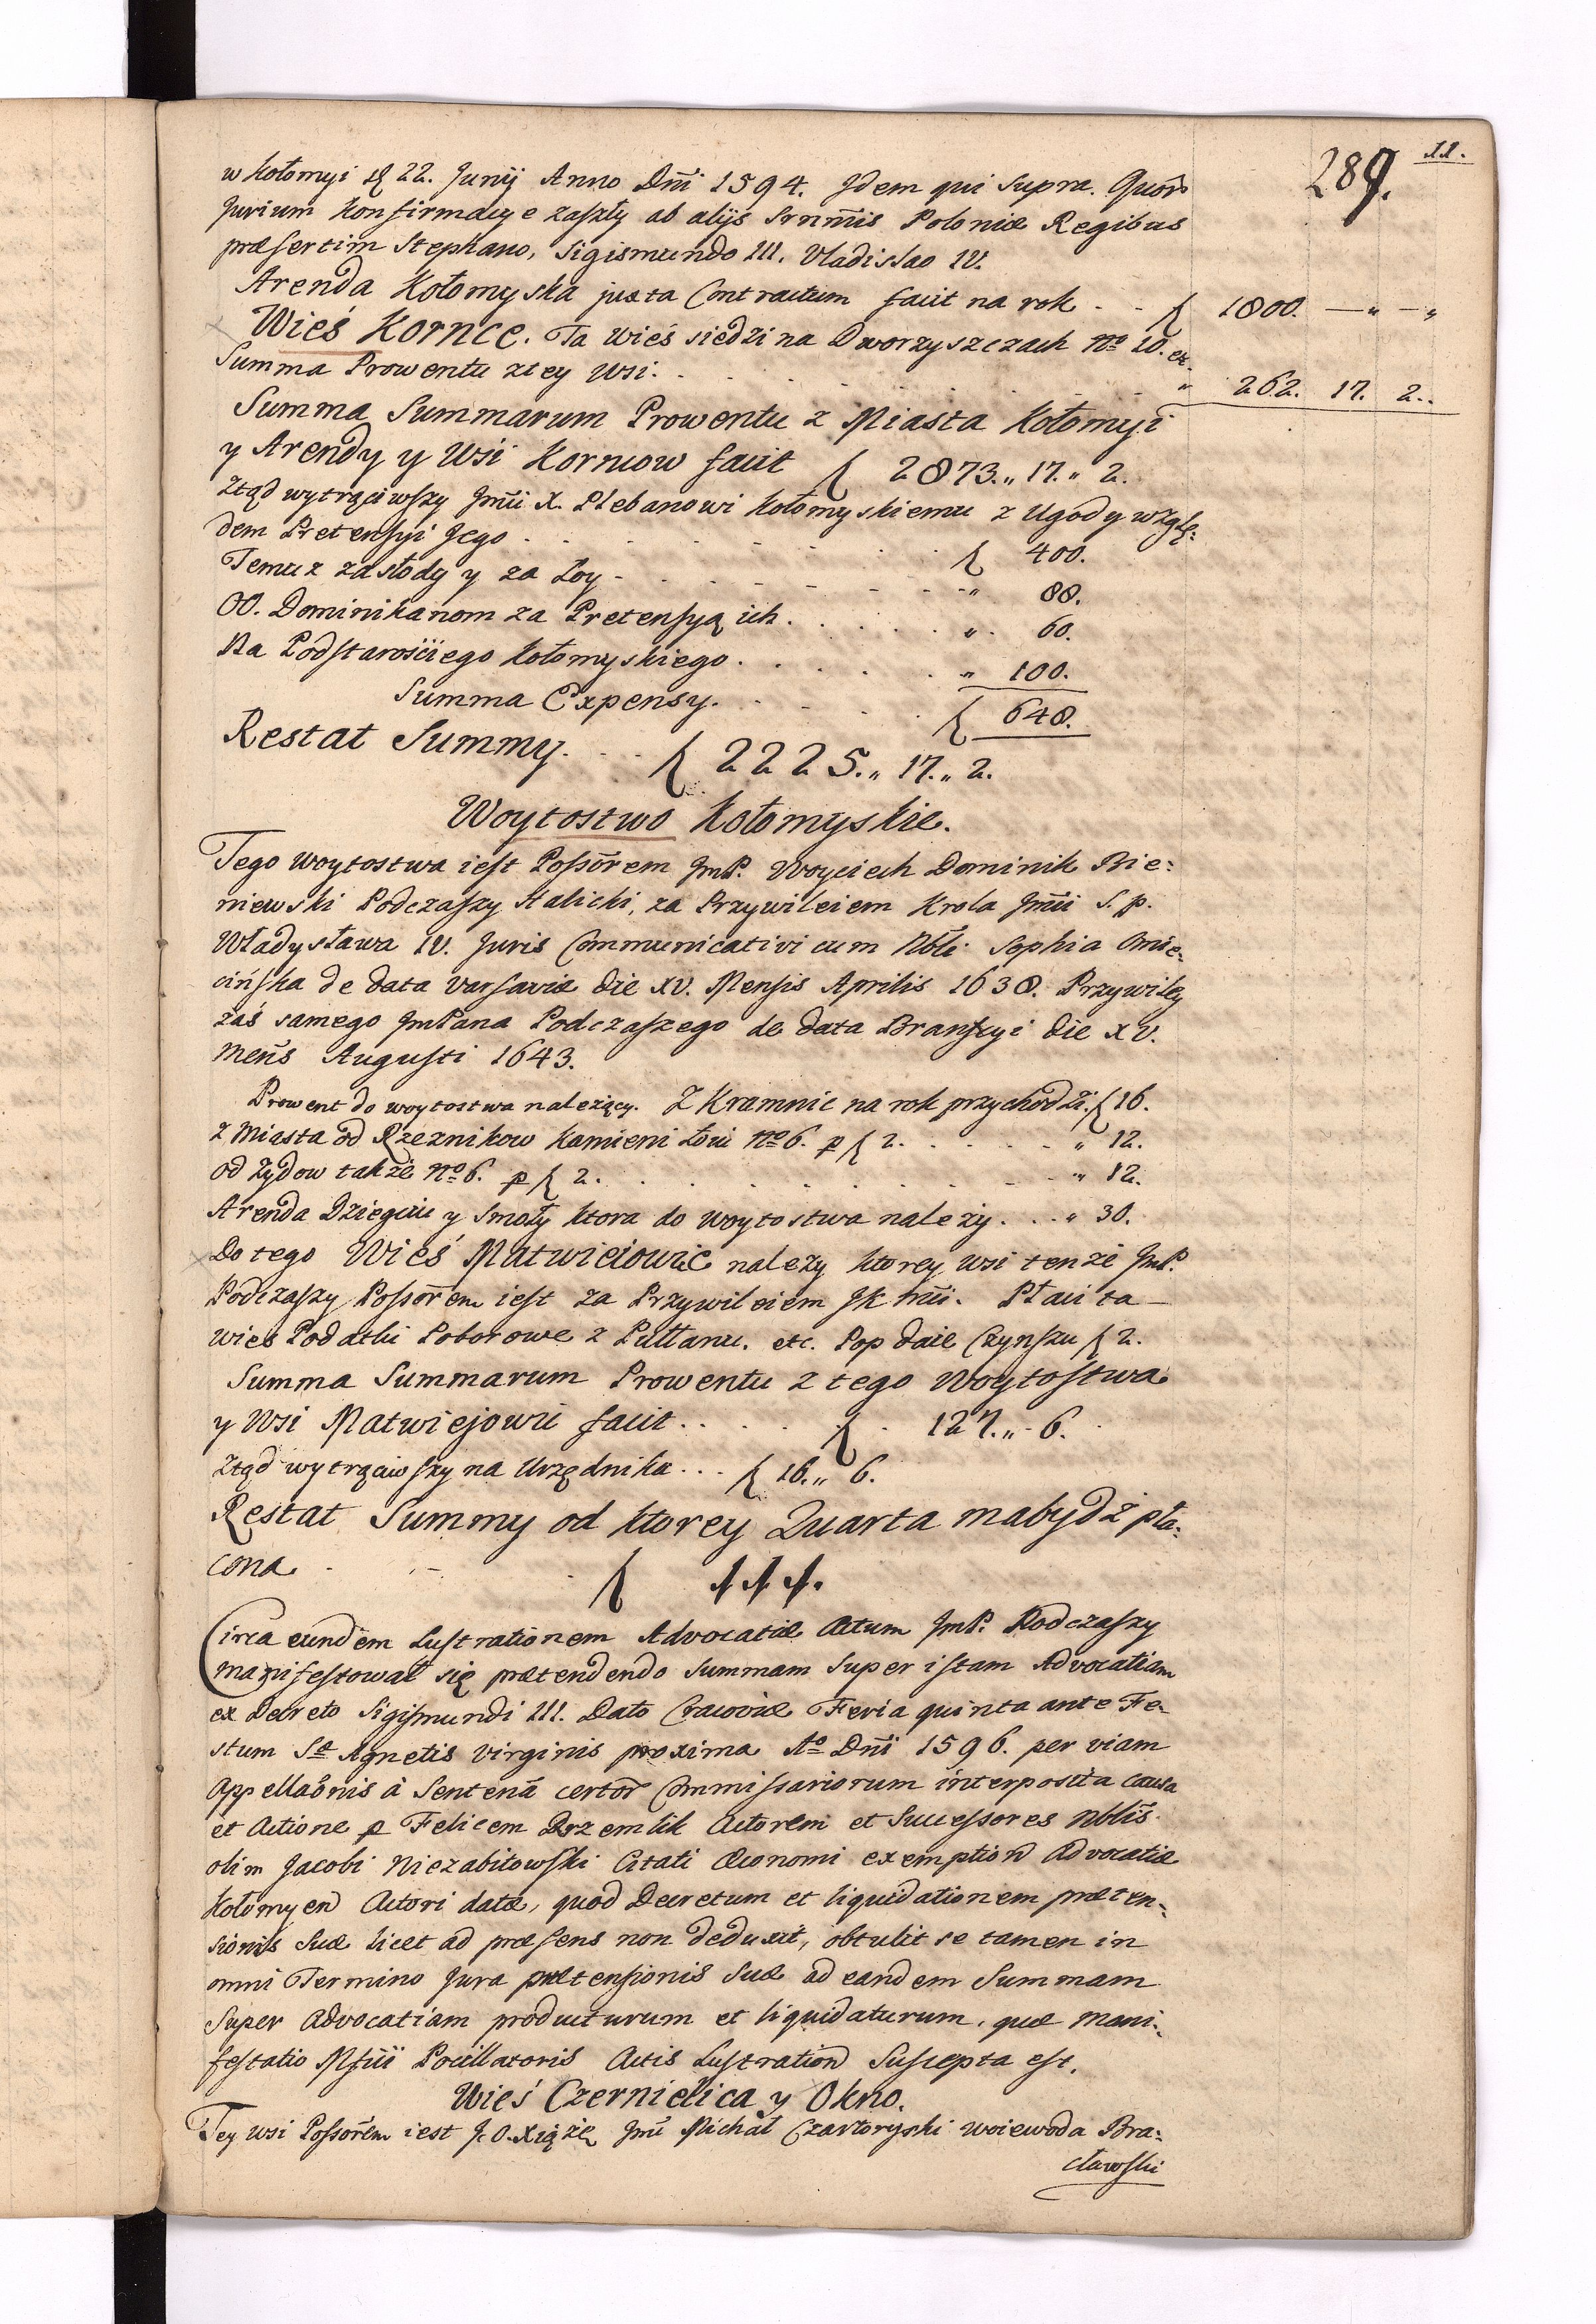 289. 11.
w Kołomyi d 22. Junij Anno Dni 1594. Jdem qui supra. Quor
Jurium Konfirmacye zaszły ab alijs Srnmis Poloniæ Regibus
præsertim Stephano, Sigismundo III. Vladislao IV.
Arenda Kołomyska juxta Contractum facit na rok . . ƒ 1800. — „ — „
Wieś Kornce. Ta wieś siedzi na Dworzyszczach No 10. etc.
Summa Prowentu z tey wsi. . . . . . „ 262. 17. 2..
Summa Summarum Prowentu z Miasta Kołomyi
y Arendy y Wsi Korncow facit ƒ 2873. „ 17. „ 2.
Ztąd wytrąciwszy Jmci X. Plebanowi Kołomyskiemu z Ugody wzglę-
dem Pretensyi Jego . . . . . ƒ 400.
Temuz za słody y za Łoy - . . . . „ 88.
OO. Dominikanom za Pretensyą ich . . . . „ 60.
Na Podstarościego Kołomyskiego . . . . „ 100.
Summa Expensy. . . . . ƒ 648.
Restat Summy. . . ƒ 2225. „ 17. „ 2.
Woytostwo Kołomyskie.
Tego woytostwa iest Possorem JmP. Woyciech Dominik Bie-
niewski Podczaszy Halicki, za Przywileiem Krola Jmci S. p.
Władysława IV. Juris Communicativi cum Nbli Sophia Omie-
cińska de data Varsaviæ die XV. Mensis Aprilis 1638. Przywiley
zaś samego JmPana Podczaszego de data Branscyi die XV.
Mens Augusti 1643.
Prowent do woytostwa nalezący. Z Kramnic na rok przychodzi. ƒ 16.
z Miasta od Rzeznikow Kamieni Łoiu No 6. p ƒ 2. . . . . „ 12.
od Zydow także No 6. p ƒ 2. . . . . . „ 12.
Arenda Dziegciu y Smoły ktora do woytostwa należy. . . „ 30.
Do tego Wieś Matwieiowie nalezy ktorey wsi tenże JmP.
Podczaszy Possorem iest za Przywileiem JK Mci. Płaci ta
wieś Podatki Poborowe z Pułłanu. etc. Pop daie Czynszu ƒ 2.
Summa Summarum Prowentu z tego Woytostwa
y Wsi Matwiejowic facit . . . . ƒ . 127. „ 6.
Ztąd wytrąciwszy na Urzędnika . . . ƒ 16. „ 6.
Restat Summy od ktorey Quarta ma bydź pła-
cona . . . ƒ 111.
Circa eundem Lustrationem Advocatiæ Actum JmP. Podczaszy
manifestował się prætendendo Summam super istam Advocatiam
ex Decreto Sigismundi III. Dato Cracoviæ Feria quinta ante Fe-
stum Stæ Agnetis Virginis proxima Ao Dni 1596. per viam
Appellaonis à Sentena certor Commissariorum interposita causa
et Actione p Felicem Drzemlik Actorem et Successores Nblis
olim Jacobi Niezabitowski Citati Œconomi exemption Advocatiæ
Kołomyen Actori datæ, quod Decretum et liquidationem præten-
sionis suæ licet ad præsens non deduxit, obtulit se tamen in
omni Termino Jura prætensionis suæ ad eandem Summam
super Advocatiam producturum et liquidaturum, quæ mani-
festatio Mfici Pocillatoris Actis Lustration Suscepta est.
Wieś Czernielica y Okno.
Tey wsi Possorem iest J. O. Xiąże Jmć Michał Czartoryski Woiewoda Bra-
cławski